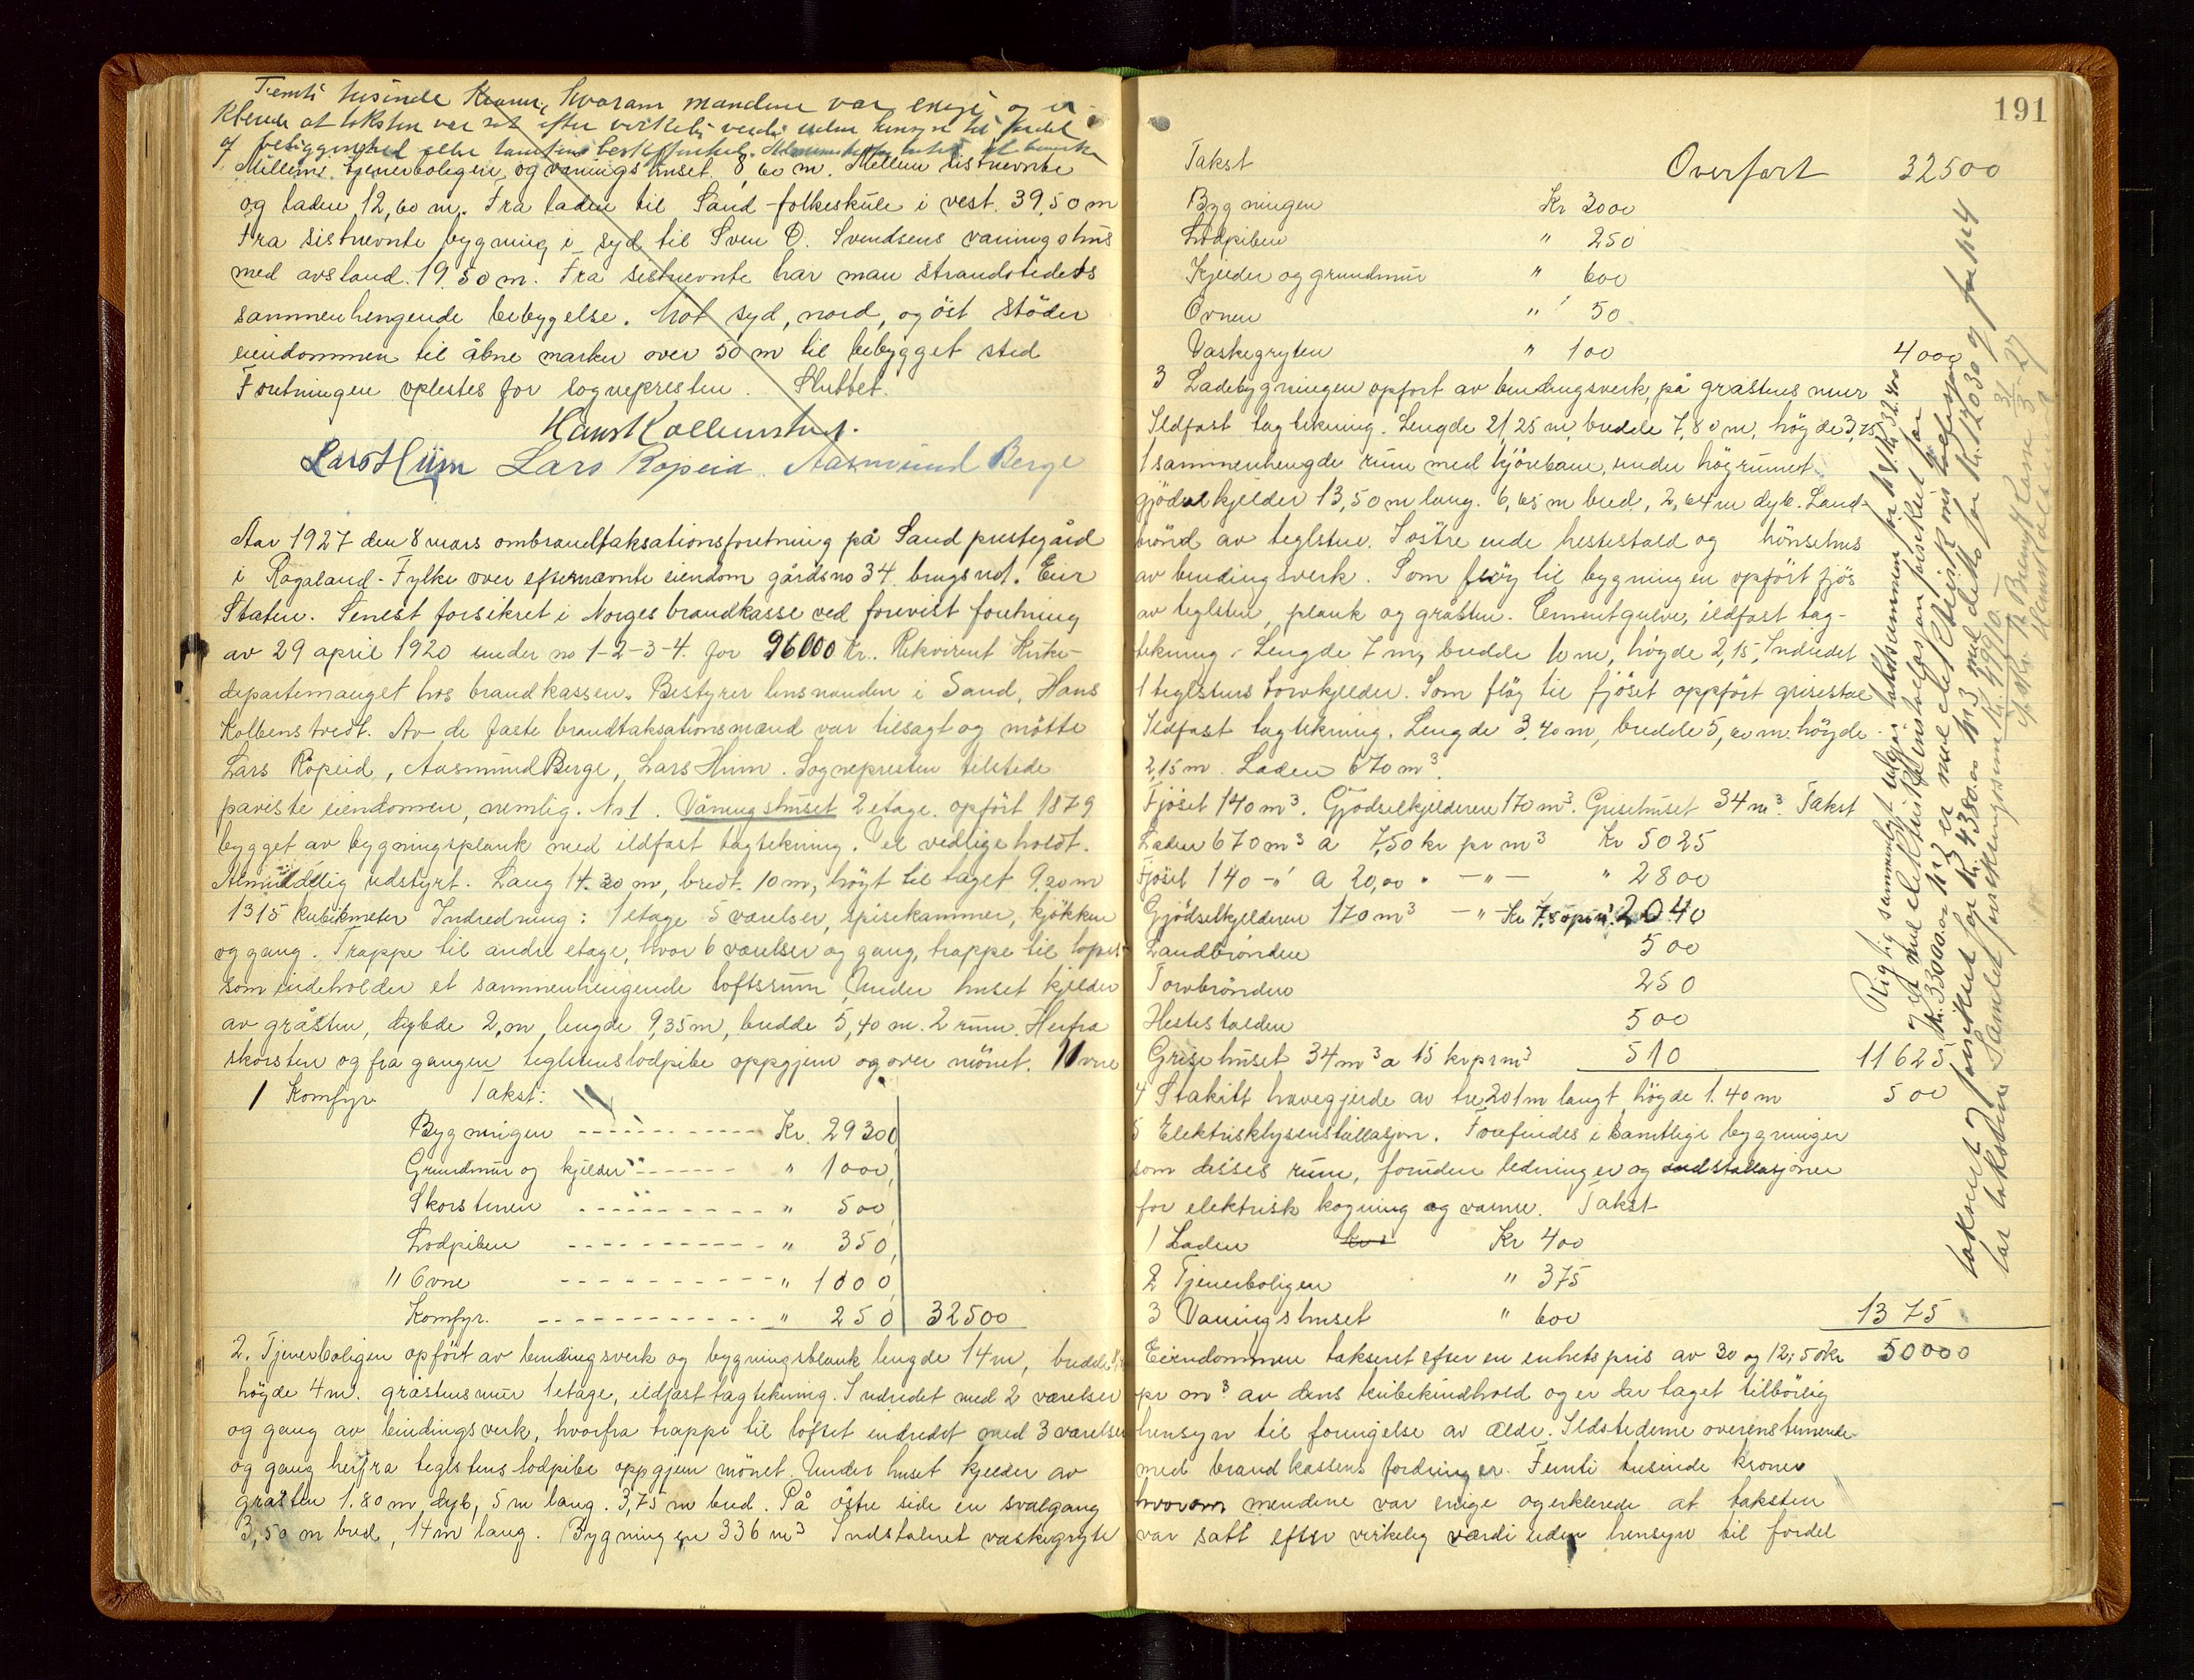 Femti tusinde Kroner, hvorom mændene var enige og er
klerede at taksten var sat efter virkelig verdi uden hensyn til fordel
af beliggenhed eller tomtens beskaffenhet.
Millem tjenerboligen og vaningshuset 8,60 m. Mellem sistnevnte
og laden 12,60 m. Fra laden til Sand folkeskule i vest. 39,50 m
Fra sistnevnte bygning i syd til Sven O. Svendsens vaningshus
med avstand. 19.50 m. Fra sistnevnte har man strandstedets
sammenhengende bebygelse. Mot syd, nord, og öst støder
eiendommen til åbne marker over 50 m til bebygget sted
Forretningen oplestes for sognepresten. Sluttet.
Hans Kollenstvedt.
Lars Hiim Lars Ropeid Aasmund Berge
Aar 1927 den 8 mars ombrandtaksationsforetning på Sand prestegård
i Rogaland-Fylke over efternævnte eiendom gårdsno 34. brugsno 1. Eier
Staten. Senest forsikret i Norges brandkasse ved forevist foretning
av 29 april 1920 under no 1-2-3-4. for 96000 Kr. Rekvirent Kirke-
departemanget hos brandkassen. Bestyrer lensmanden i Sand, Hans
Kolbenstvedt. Av de faste brandtaksationsmænd var tilsagt og mötte
Lars Ropeid, Aasmund Berge, Lars Hiim. Sognepresten tilstede
paviste eiendomen, nemlig. No 1. Våningshuset 2 etage. opfört 1879
bygget av bygningsplank med ildfast tagtekning. Vel vedlige holdt.
Almindelig udstyrt. Lang 14.30 m, bredt. 10 m, höyt til taget 9.20 m
1315 kubikmeter Indredning: 1 etage 5 værelser, spisekammer, kjökken
og gang. Trappe til andre etage, hvor 6 værelser og gang, trappe til
som indeholder et sammenhengende loftsrum. Under huset kjelder
av gråsten, dybde 2, m, lengde 9,35 m, bredde 5,40 m. 2 rum. Herfra
skorsten og fra gangen teglstenslodpibe oppgjem og over mönet. 11 ovne
1 Komfyr Takst:
Bygningen ---------- Kr. 29300
Grundmur og kjelder ------ " 1000,
Skorstenen --------- " 500
Lodpiben ----------- " 350,
11 Ovne ---------- " 1000,
Komfyr. ------------ " 250 32500
2. Tjenerboligen opfört av bindingsverk og bygningsblank lengde 14 m, bredde
högde 4 m. gråstensmur 1 etage, ildfast tagtekning. Indredet med 2 værelser
og gang av bindingsverk, hvorfra trappe til loftet indredet med 3 værelser
og gang herfra teglstens lodpibe oppgjem mönet. Under huset kjelder av
gråsten 1.80 m dyb, 5 m lang. 3,75 m bred. På östre side en svalgang
3,50 m bred, 14 m lang. Bygningen 336 m³ Indstaleret vaskegryte
191
Takst Overfört 32500
Bygningen Kr 3000
Lodpiben " 250
Kjelder og grundmur " 600
Ovnen " 50
Vaskegryten " 100 4000
3 Ladebygningen opfort av bindingsverk, på gråstens mur
Ildfast tagtekning. Lengde 21,25 m, bredde 7,80 m, högde 3,75
1 sammenhengde rum med kjörebane, under högrumet
gjödselkjelder 13,50 m lang. 6,65 m bred, 2,64 m dyb. Land-
brönd av teglsten. I östre ende hestestald og hönsehus
av bindingsverk. Som flöy til bygningen opfört fjös
av teglsten, plank og gråsten. Cementgulve, ildfast tag-
tekning. Lengde 7 m, bredde 10 m, högde 2,15, Indredet
1 teglstens torvkjelder. Som flöy til fjöset oppfört grisestal
Ildfast tagtekning. Lengde 3,40 m, bredde 5, m. högde
2,15 m. Laden 670 m³.
Fjöset 140 m³. Gjödselkjelderen 170 m³. Grisehuset 34 m³ Takst
Laden 670 m³ a 7,50 kr pr m³ Kr 5025
Fjöset 140 -"- a 20,00 " -"- " 2800
Gjödselkjelderen 170 m³ -"- Kr 2040
Landbrönden 500
Torvbrönden 250
Hestestalden 500
Grisehuset 34 m³ a 15 kr pr m³ 510 11625
4 Stakitt havegjerde av tre 201 m langt högde 1.40 m 500
5 Elektrisklysenstallasjon. Forefindes i samtlige bygninger
som disses rum, foruden ledninger og indstallasjoner
for elektrisk kogning og varme. Takst
1 Laden Kr 400
2 Tjenerboligen " 375
3 Vaningshuset " 600 1375
Eiendommen takseret efter en enhetspris av 30 og 12,50 kr 50000
pr m³ av dens kubikindhold og er der taget tilbörlig
hensyn til foringelse av ælde. Ildstederne overenstemende
med brandkassens fordringer. Femti tusinde kroner
hvorom mendene var enige og erklerede at taksten
var satt efter virkelig værdi uden hensyn til fordel
Rigtig sammenlagt utgjør takstsummen for nr 1 kr. 32.400
og er med elektrisk installasjon forsikret for
kr. 33000.00 Nr 2 er med elektrisk
takseret og forsikret for kr. 4380.00 Nr 3 med ditto for kr. 12030 og for nr 4
har taksten Samlet forsikringssum Kr. 49910.- 31/3-27
Hans Kolbenstvedt